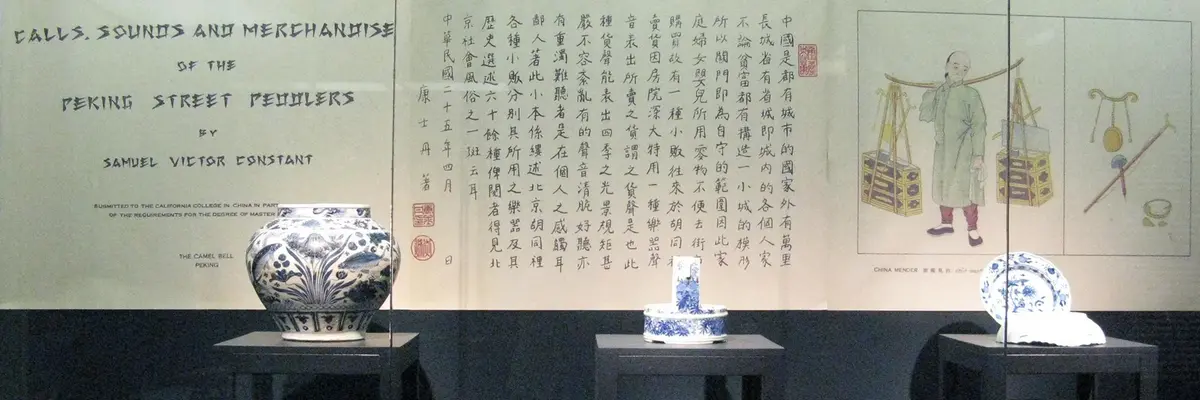 CALLS, SOUNDS AND MERCHANDISE
OF THE
PEKING STREET PEDDLERS
BY
SAMUEL VICTOR CONSTANT
SUBMITTED TO THE CALIFORNIA COLLEGE IN CHINA IN PART
OF THE REQUIREMENTS FOR THE DEGREE OF MASTER
THE CAMEL BELL
PEKING
中國是都有城市的國家外有萬里
長城省有省城即城内的各個人家
不論貧富都有構造一小城的模形
所以關門即為自守的範圍因此家
庭婦女嬰兒所用零物不便去街
購買故有一種小販往來於胡同
賣貨因房院深大特用一種樂器聲
音表出所賣之貨謂之貨聲是也此
種貨聲能表出四季之光景規矩甚
嚴不容紊亂有的聲音清脆好聽亦
有重濁難聽者是在個人之感觸耳
鄙人著此小本係縷述北京胡同裡
各種小販分別其所用之樂器及其
歷史選述六十餘種俾閱者得見北
京社會風俗之一斑云耳
康士丹 著
中華民國二十五年四月 日
CHINA MENDER